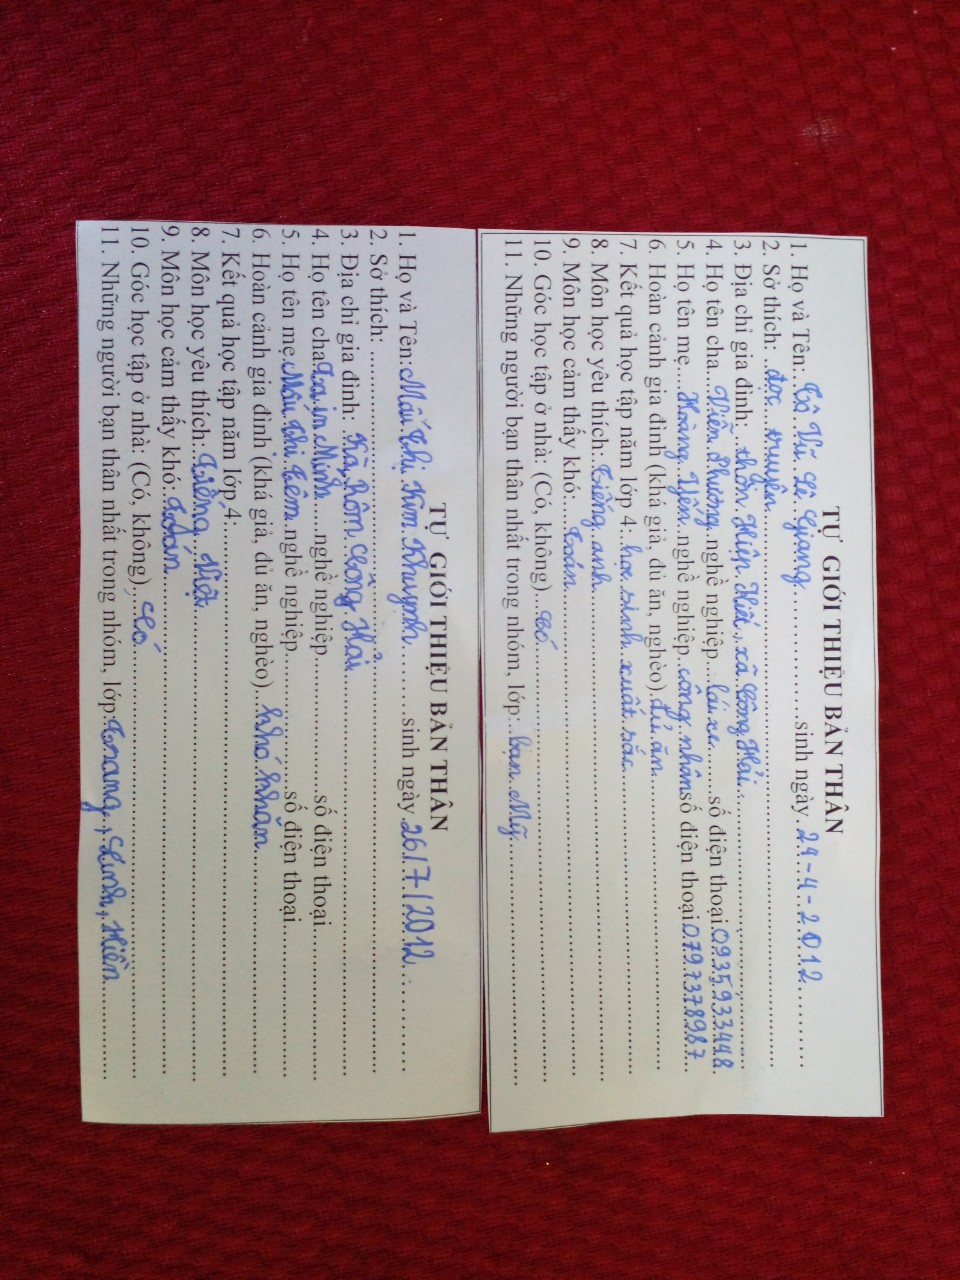 TỰ GIỚI THIỆU BẢN THÂN
1. Họ và Tên: Tô Vũ Lê Giang sinh ngày 29-4-2012
2. Sở thích: đọc truyện
3. Địa chỉ gia đình: thôn Hiệp Kiết, xã Công Hải
4. Họ tên cha Viễn Phương nghề nghiệp lái xe số điện thoại 0935933448
5. Họ tên mẹ Hoàng Yến nghề nghiệp công nhân số điện thoại 0797378987
6. Hoàn cảnh gia đình (khá giả, đủ ăn, nghèo) đủ ăn
7. Kết quả học tập năm lớp 4: học sinh xuất sắc
8. Môn học yêu thích: Tiếng anh
9. Môn học cảm thấy khó: Toán
10. Góc học tập ở nhà: (Có, không) Có
11. Những người bạn thân nhất trong nhóm, lớp: bạn Mỹ
TỰ GIỚI THIỆU BẢN THÂN
1. Họ và Tên: Mấu Thị Kim Khuynh sinh ngày 26/7/2012
2. Sở thích:
3. Địa chỉ gia đình: Kà Rôm Công Hải
4. Họ tên cha Minh nghề nghiệp số điện thoại
5. Họ tên mẹ Mấu Thị Têm nghề nghiệp số điện thoại
6. Hoàn cảnh gia đình (khá giả, đủ ăn, nghèo) khó khăn
7. Kết quả học tập năm lớp 4:
8. Môn học yêu thích: Tiếng Việt
9. Môn học cảm thấy khó: Toán
10. Góc học tập ở nhà: (Có, không) Có
11. Những người bạn thân nhất trong nhóm, lớp: Trang, Linh, Hiền